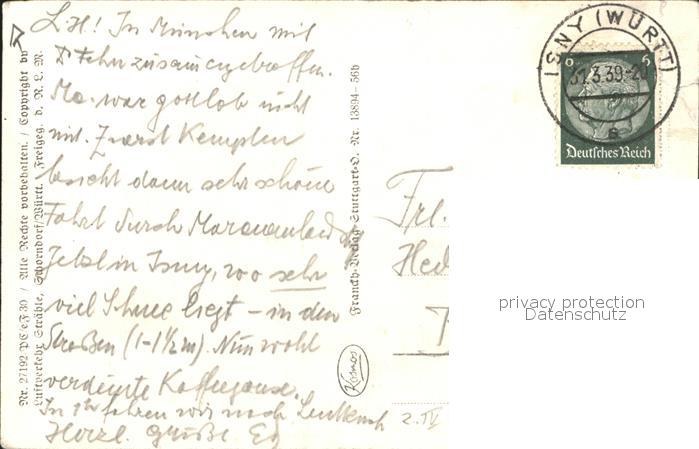 L. H! In München mit
Dr Fehr zusammengetroffen.
Ma. war gottlob nicht
mit. Zuerst Kempten
besicht dann sehr schöne
Fahrt durch
Jetzt in Isny, wo sehr
viel Schnee liegt – in den
Straßen (1–1½ m). Nun wohl
verdiente Kaffeepause.
In 1 Std fahren wir nach Leutkirch
Herzl. Grüße
2. IV
Nr. 27192 PC/eF 30 / Alle Rechte vorbehalten. / Copyright by
Luftverkehr Strähle, Schorndorf/Württ. Freigeg. d. R. L. M.
Franckh-Verlag Stuttgart-O. Nr. 13894—56b
Kosmos
ISNY (WÜRTT)
31.3.39.-20
a
6 6
Deutsches Reich
Frl.
privacy protection
Datenschutz